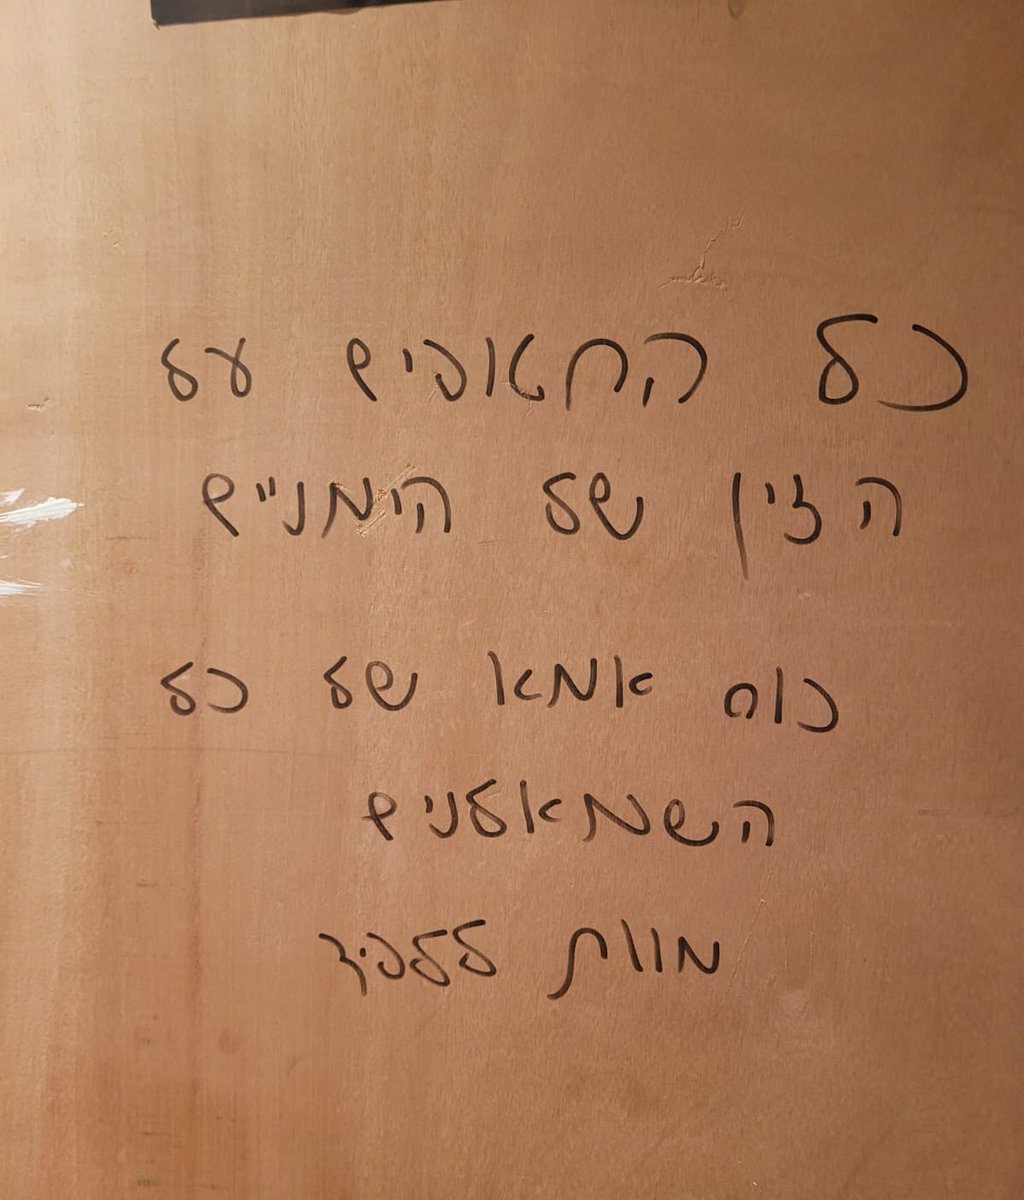 כל החאפים על
הזין של הימניים
כוס אמא של כל
השמאלנים
מוות ללפיד